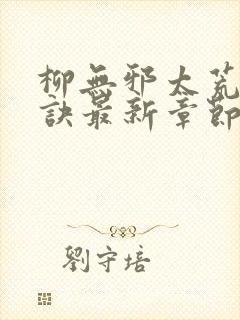 柳無邪太荒
訣最新章節
劉守培